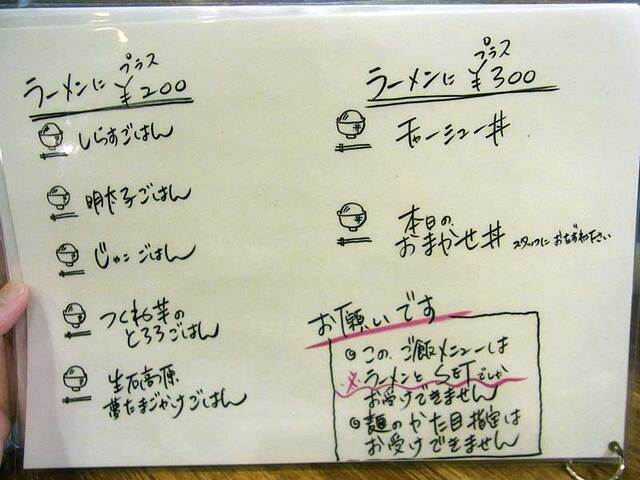 ラーメンに プラス ¥200
しらすごはん
明太子ごはん
じゃこごはん
つくね芋の
とろろごはん
生石高原
夢たまごかけごはん
ラーメンに プラス ¥300
チャーシュー丼
本日の
おまかせ丼 スタッフにおたずね下さい
お願いです
◎この、ご飯メニューは
※ラーメンとSETでしか
お受けできません
◎麺のかた目指定は
お受けできません